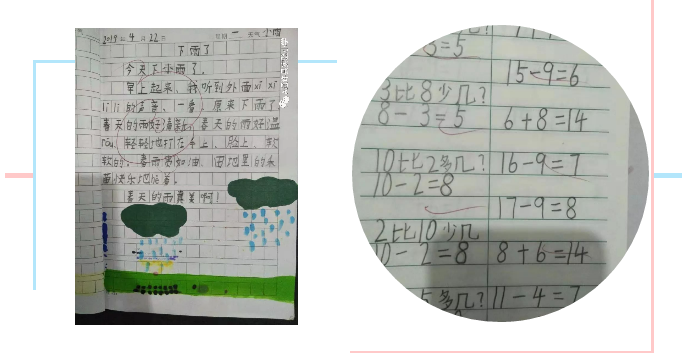 2019年4月22日 星期一 天气小雨
下雨了
今天下小雨了。
早上起来,我听到外面xī xī
lì lì的声音,一看,原来下雨了。
春天的雨好清新,春天的雨好温
róu,轻轻地打在手上、脸上,软
软的。春雨贵如油,田地里的
苗快乐地
春天的雨真美啊!
3=5
15-9=6
3比8少几?
8-3=5
6+8=14
10比2多几?
16-9=7
10-2=8
17-9=8
2比10少几
10-2=8
8+6=14
5多几?
11-4=7